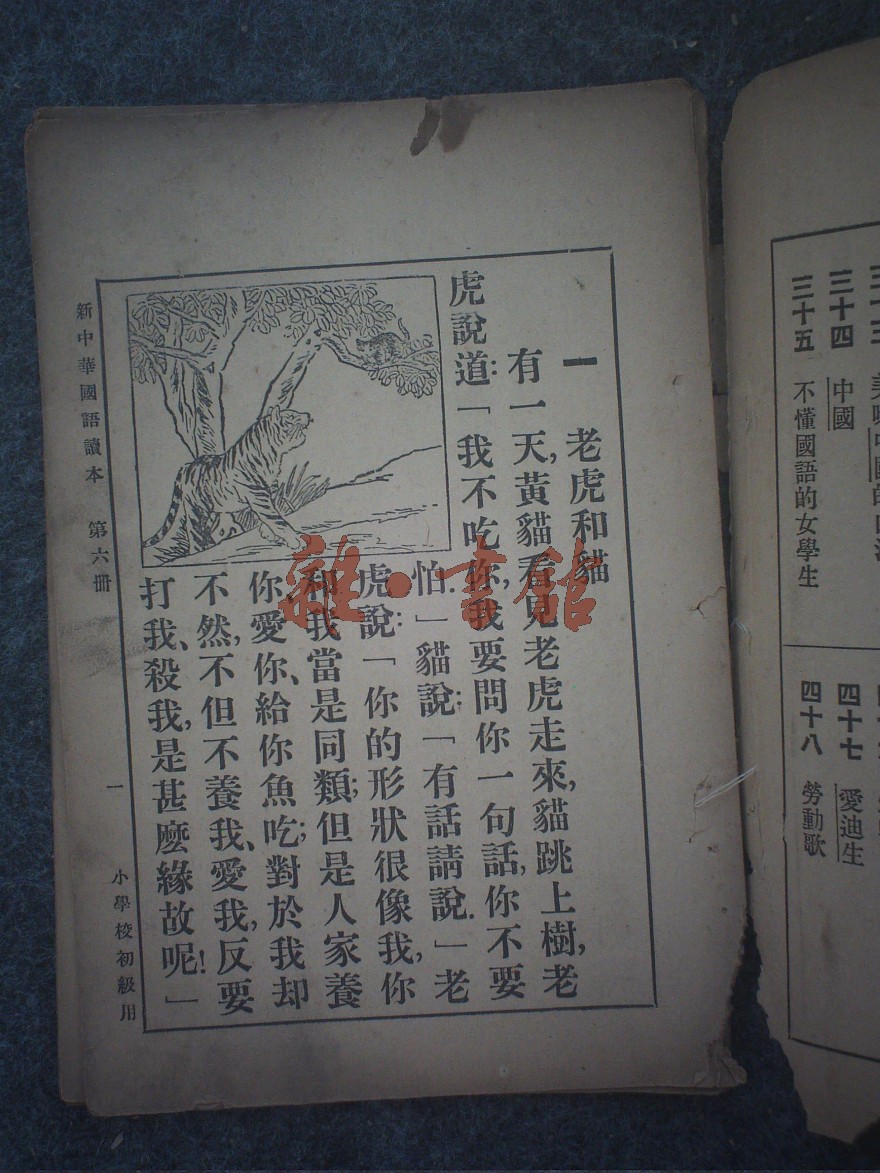 三十四 中國
三十五 不懂國語的女學生
四十七 愛迪生
四十八 勞動歌
一 老虎和貓
有一天,黃貓看見老虎走來,貓跳上樹,老
虎說道:「我不吃你,我要問你一句話,你不要
怕.」貓說:「有話請說.」老
虎說:「你的形狀很像我,你
和我當是同類;但是人家養
你、愛你、給你魚吃;對於我却
不然,不但不養我、愛我,反要
打我、殺我,是甚麼緣故呢!」
新中華國語讀本 第六冊 一 小學校初級用
雜·書館